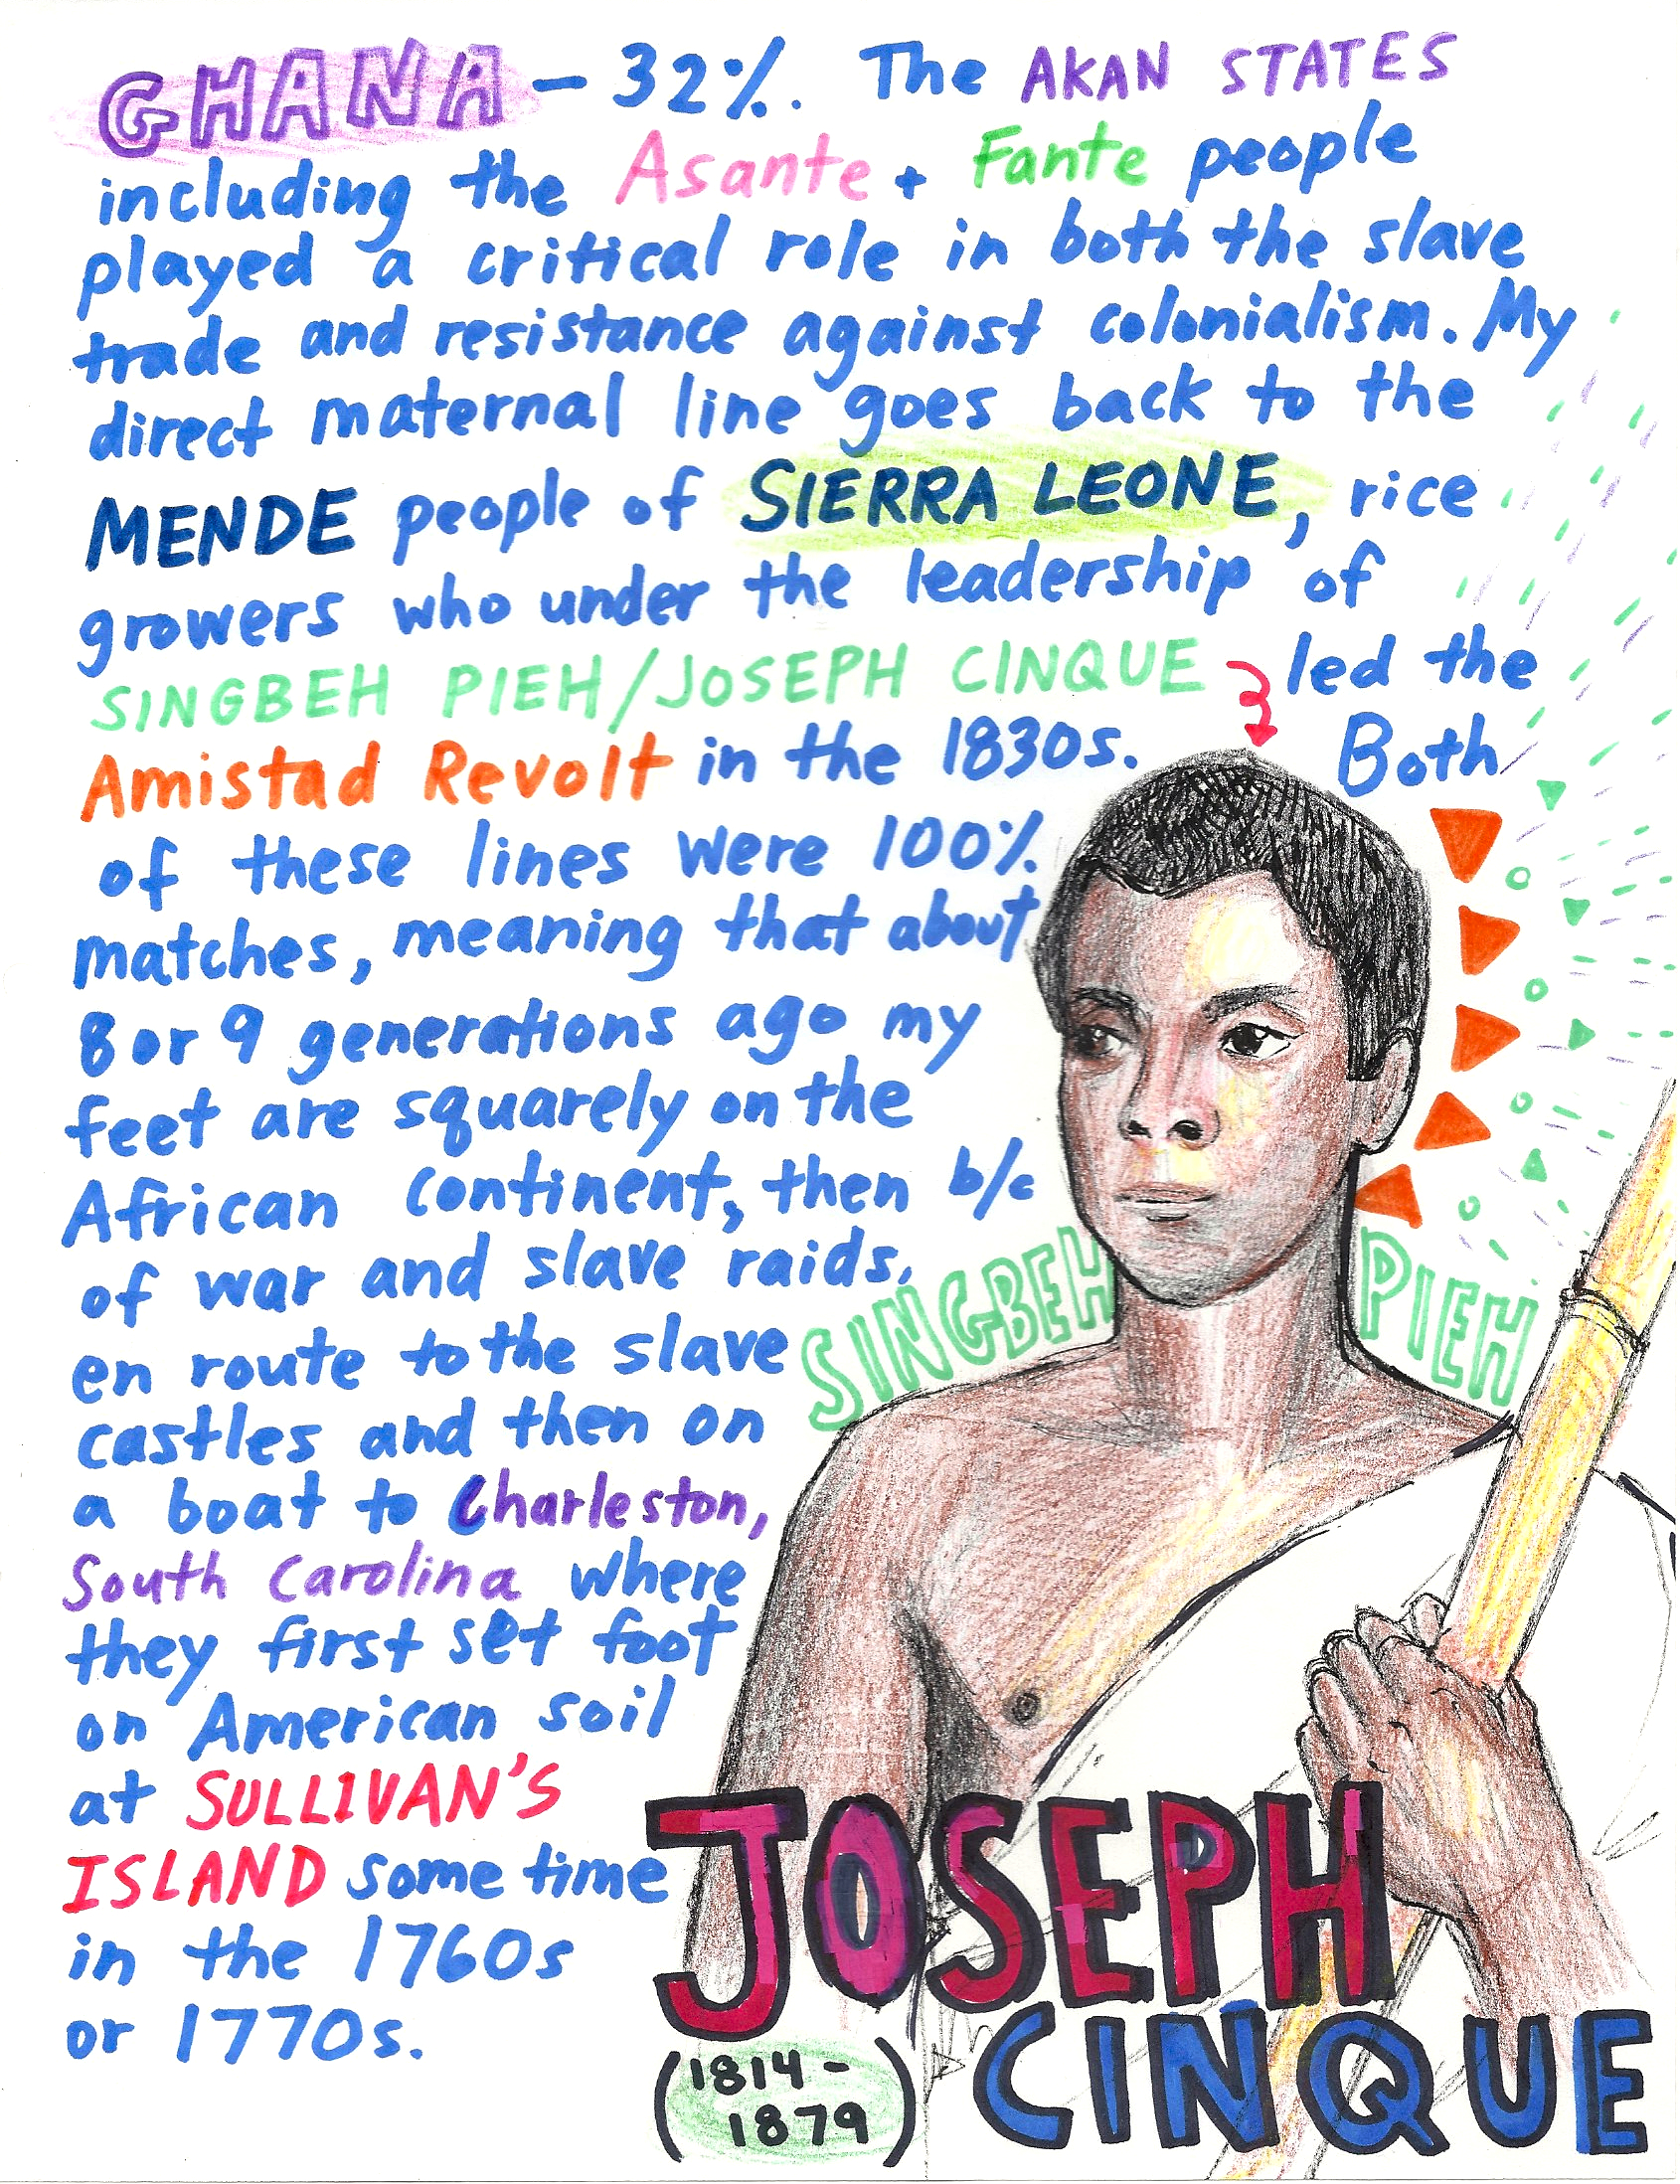 GHANA – 32%. The AKAN STATES
including the Asante + Fante people
played a critical role in both the slave
trade and resistance against colonialism. My
direct maternal line goes back to the
MENDE people of SIERRA LEONE, rice
growers who under the leadership of
SINGBEH PIEH/JOSEPH CINQUE led the
Amistad Revolt in the 1830s. Both
of these lines were 100%
matches, meaning that about
8 or 9 generations ago my
feet are squarely on the
African continent, then b/c
of war and slave raids,
en route to the slave
castles and then on
a boat to Charleston,
South Carolina where
they first set foot
on American soil
at SULLIVAN'S
ISLAND some time
in the 1760s
or 1770s.
SINGBEH PIEH
JOSEPH
CINQUE
(1814-
1879)